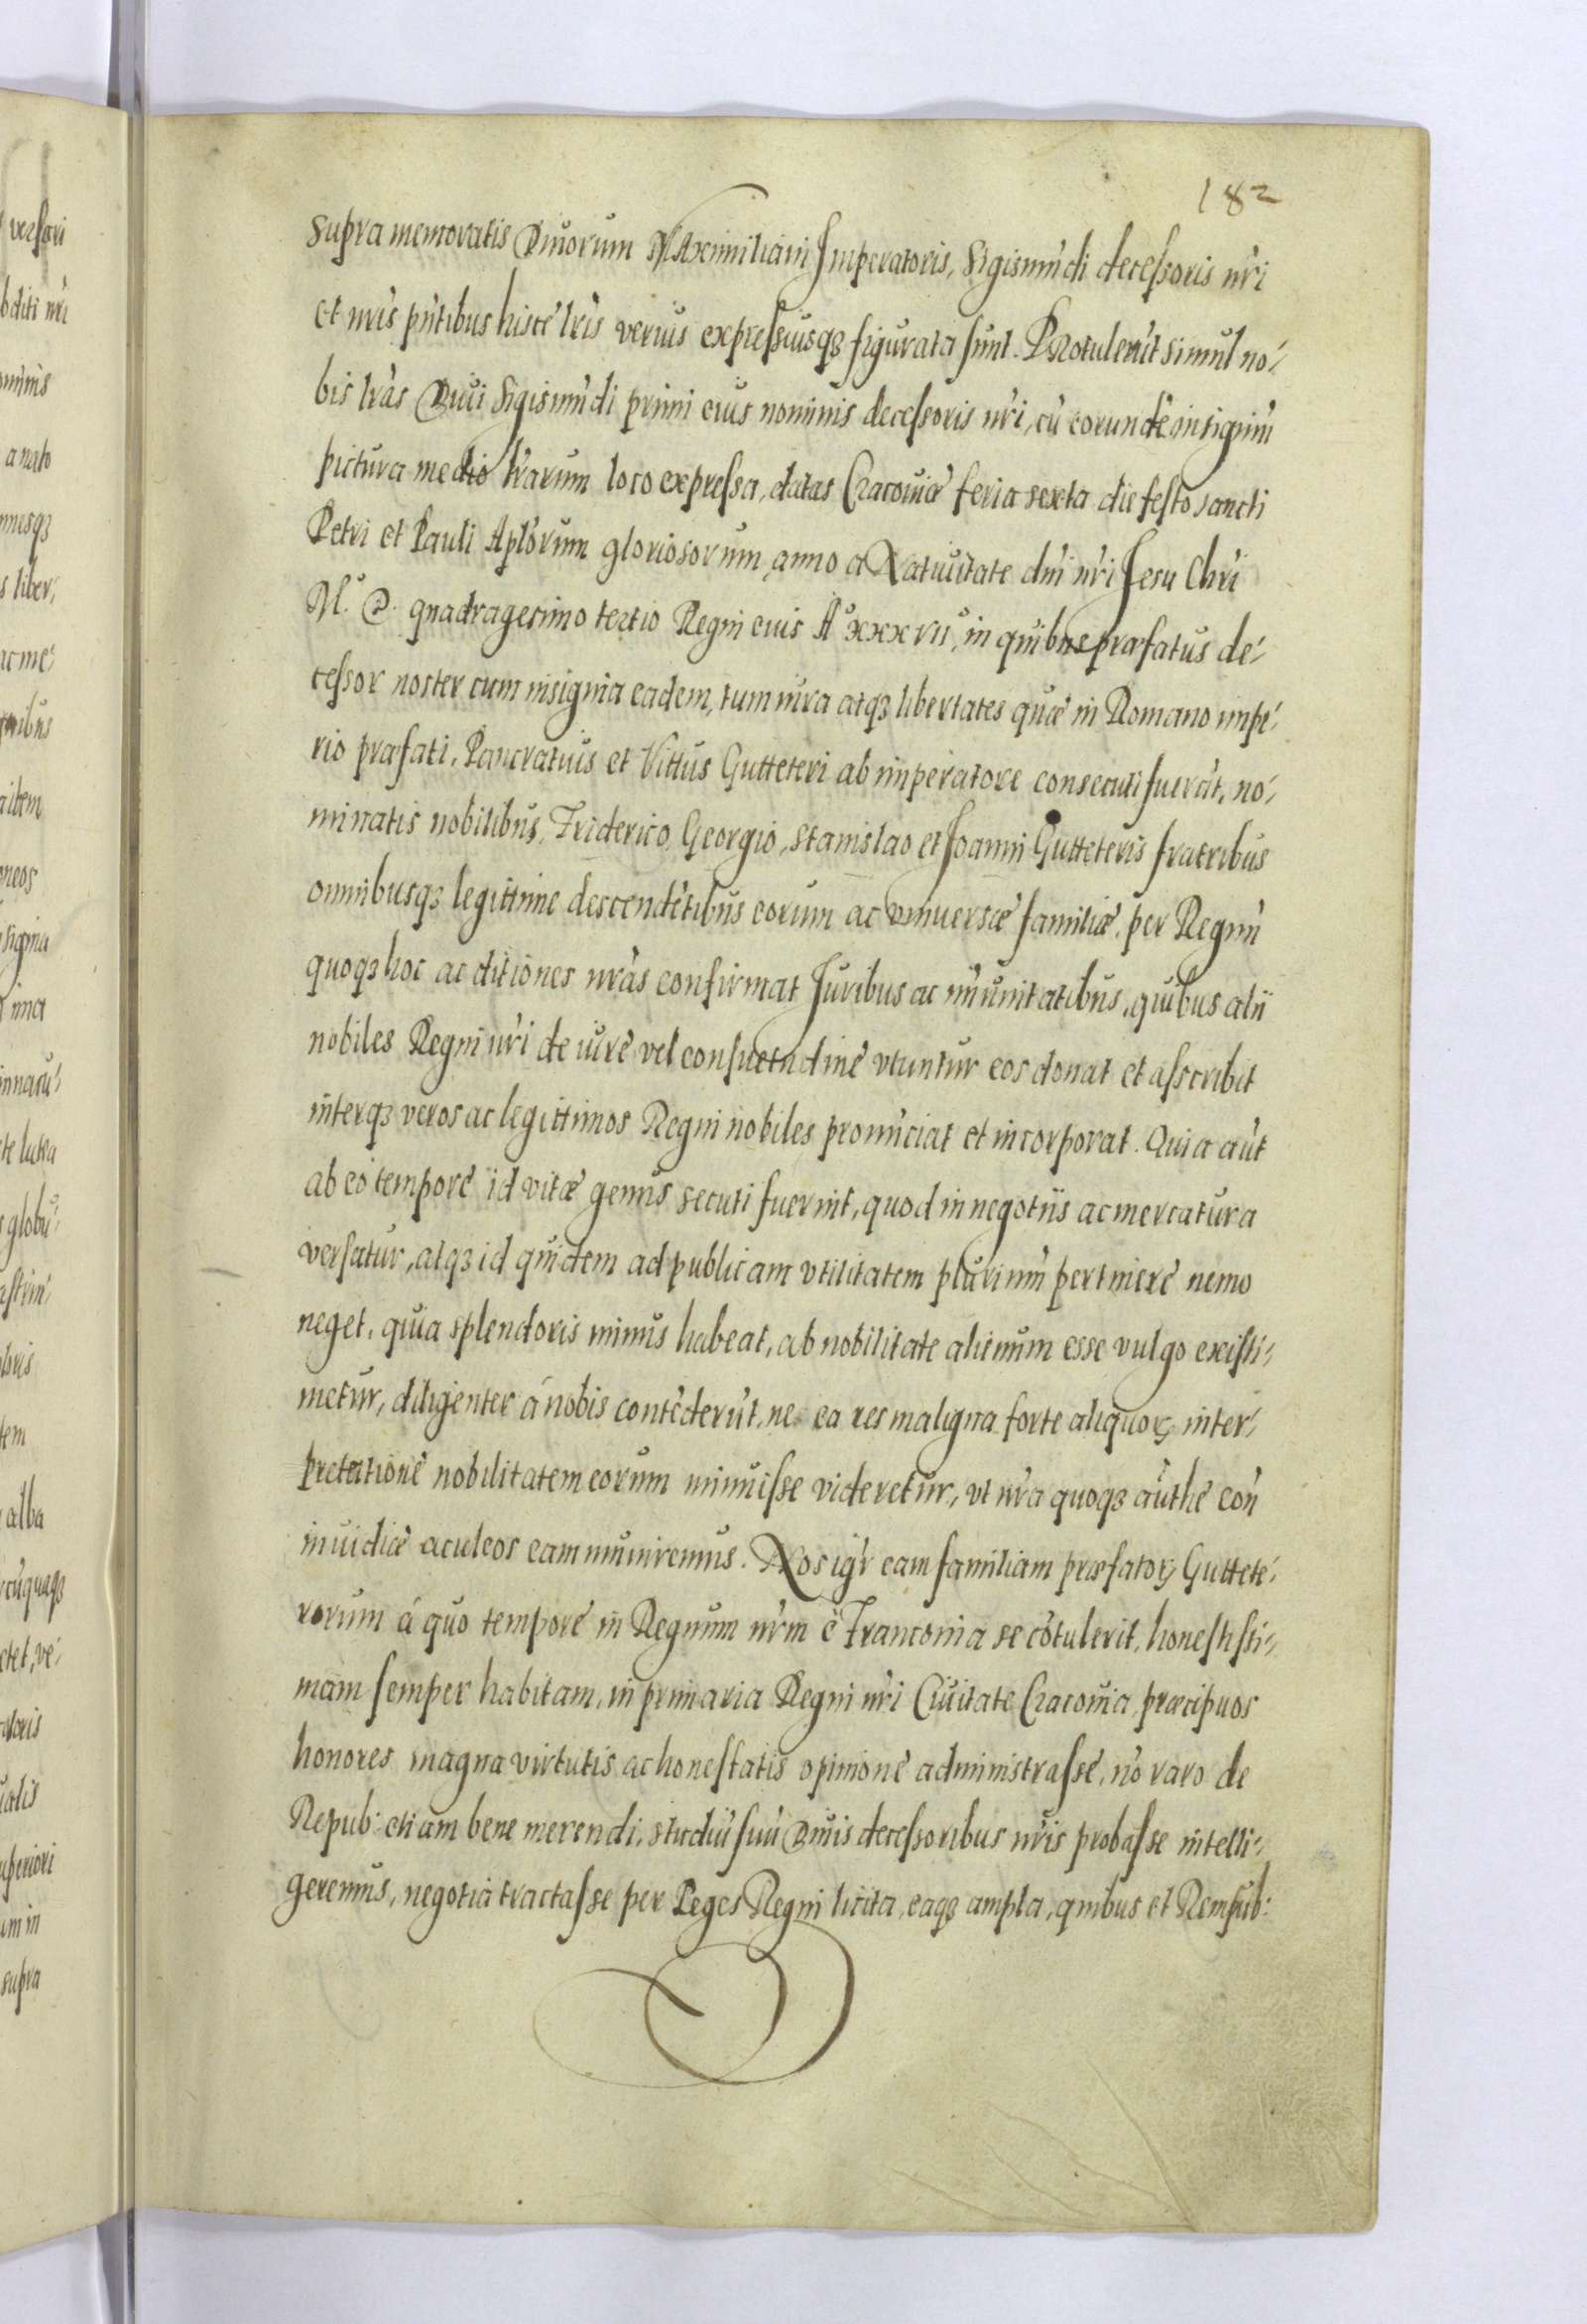 182
supra memoratis Diuorum Maximiliani Imperatoris, Sigismũdi decessoris nr̃i
et nr̃is pñtibus hisce lr̃is verius expressiusq3 figurata sunt. Protulerũt simul no-
bis lr̃as Diui Sigismũdi primi eius nominis decessoris nr̃i, cũ eorundẽ insigniũ
pictura medio lr̃arum loco expressa, datas Cracouiæ feria sexta die festo sancti
Petri et Pauli Apl̃orum gloriosorum anno a Natiuitate dñi nr̃i Jesu Chr̃i
M.º D. quadragesimo tertio Regni eius Aº xxxvii, in quibus præfatus de-
cessor noster cum insignia eadem, tum iura atq3 libertates quæ in Romano impe-
rio præfati, Pancratius et Vittus Gutteteri ab imperatore consecuti fuerãt, no-
minatis nobilibus, Friderico, Georgio, Stanislao et Joanni Gutteteris fratribus
omnibusq3 legittime descendẽtibus eorum ac vniuersæ familiæ, per Regnũ
quoq3 hoc ac ditiones nr̃as confirmat Juribus ac im̃unitatibus, quibus alii
nobiles Regni nr̃i de iure vel consuetudine vtuntur eos donat et asscribit
interq3 veros ac legittimos Regni nobiles pronũciat et incorporat. Quia aũt
ab eo tempore id vitæ genus secuti fuerint, quod in negotiis ac mercatura
versatur, atq3 id quidem ad publicam vtilitatem plurimũ pertinere nemo
neget, quia splendoris minus habeat, ab nobilitate alienum esse vulgo existi-
metur, diligenter á nobis contẽderũt, ne ea res maligna forte aliquoꝝ inter-
pretatione nobilitatem eorum minuisse videretur, vt nr̃a quoq3 aũthe coñ
inuidiæ aculeos eam muniremus. Nos igr̃ eam familiam præfatoꝝ Guttete-
rorum á quo tempore in Regnum nr̃m è Franconia se cõtulerit, honestissi-
mam semper habitam, in primaria Regni nr̃i Ciuitate Cracouia, præcipuos
honores magna virtutis ac honestatis opinione administrasse, nõ raro de
Repub: etiam bene merendi, studiũ suũ Diuis decessoribus nr̃is probasse intelli-
geremus, negotia tractasse per Leges Regni licita, eaq3 ampla, quibus et Rempub: